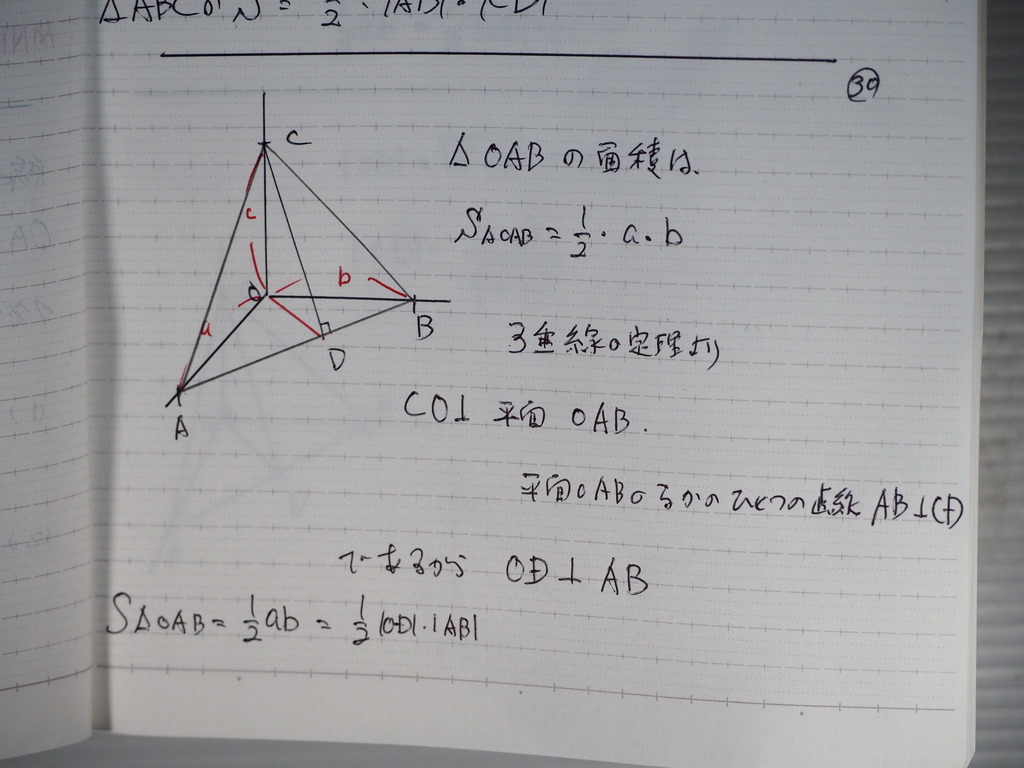 △ABCの S = 1/2・|AB|・|CD|
39
C
c
△OABの面積は、
S△OAB = 1/2・a・b
b
O
B
a
D
A
3垂線の定理より
CO⊥ 平面 OAB.
平面OABのなかのひとつの直線 AB⊥CD
であるから OD⊥AB
S△OAB = 1/2 ab = 1/2 |OD|・|AB|